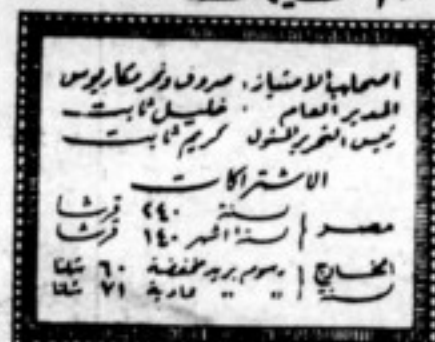 اصحاب الامتياز: صروف ونمر مكاريوس
المدير العام : خليل ثابت
رئيس التحرير المسئول كريم ثابت
الاشتراكات
مصر سنة ٢٤٠ قرشا
ستة اشهر ١٤٠ قرشا
الخارج رسوم بريد مخفضة ٦٠ شلنا
سنة عادية ٧١ شلنا